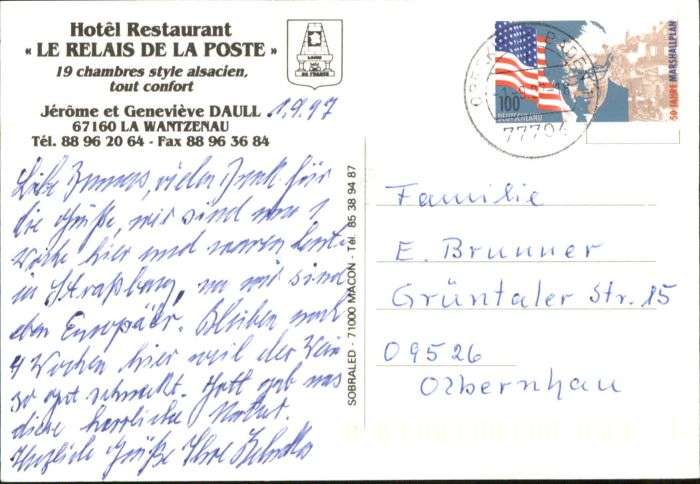 Hotêl Restaurant
« LE RELAIS DE LA POSTE »
19 chambres style alsacien,
tout confort
Jérôme et Geneviève DAULL
67160 LA WANTZENAU
Tél. 88 96 20 64 - Fax 88 96 36 84
1.9.97
Liebe Brunners, vielen Dank für
die Grüße, wir sind nun 1
Woche hier und waren heute
in Straßburg, wir sind
eben Europäer. Bleiben noch
4 Wochen hier weil der Wein
so gut schmeckt. Gott gab uns
diese herrliche Natur.
Herzliche Grüße Ihre
SOBRALED - 71000 MACON - Tél. 85 38 94 87
100
DEUTSCHLAND
50 JAHRE MARSHALLPLAN
77704
Familie
E. Brunner
Grüntaler Str. 15
09526
Olbernhau